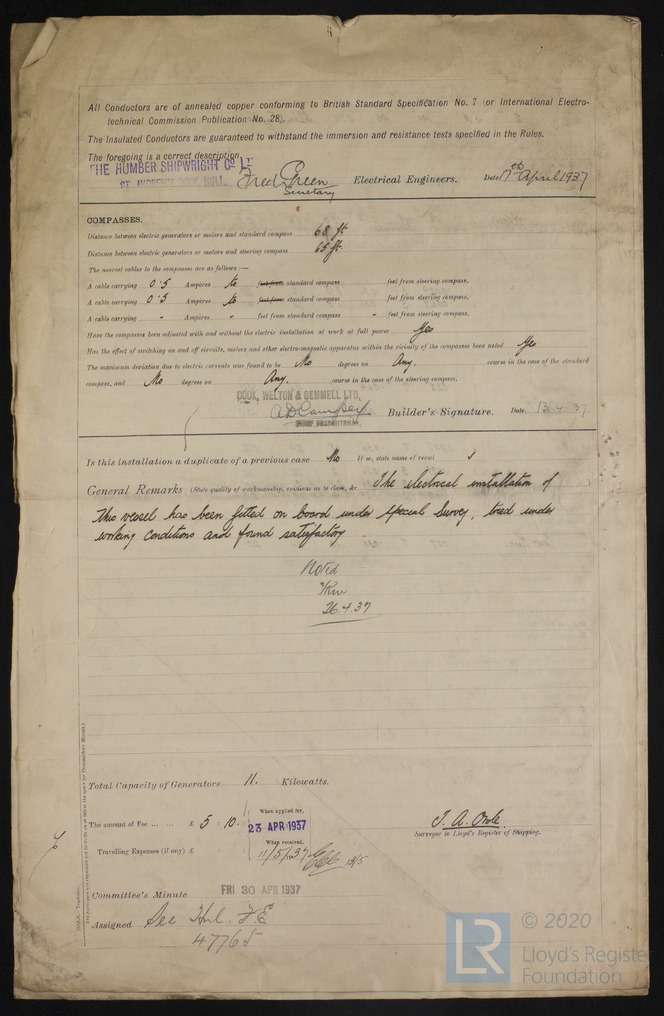 All Conductors are of annealed copper conforming to British Standard Specification No. 7 (or International Electro-
technical Commission Publication No. 28).
The Insulated Conductors are guaranteed to withstand the immersion and resistance tests specified in the Rules.
The foregoing is a correct description,
THE HUMBER SHIPWRIGHT Co. LTD
ST. ANDREW'S DOCK HULL. Fred Green Electrical Engineers. Date 7th April 1937
Secretary
COMPASSES.
Distance between electric generators or motors and standard compass 68 ft
Distance between electric generators or motors and steering compass 65 ft.
The nearest cables to the compasses are as follows:—
A cable carrying 0.5 Ampères to feet from standard compass feet from steering compass.
A cable carrying 0.5 Ampères to feet from standard compass feet from steering compass.
A cable carrying " Ampères " feet from standard compass " feet from steering compass.
Have the compasses been adjusted with and without the electric installation at work at full power Yes
Has the effect of switching on and off circuits, motors and other electro-magnetic apparatus within the vicinity of the compasses been noted Yes
The maximum deviation due to electric currents was found to be No degrees on Any. course in the case of the standard
compass, and No degrees on Any. course in the case of the steering compass.
COOK, WELTON & GEMMELL LTD,
Builder's Signature. Date 13-4-37
Is this installation a duplicate of a previous case No If so, state name of vessel
General Remarks (State quality of workmanship, opinions as to class, &c. The electrical installation of
this vessel has been fitted on board under special survey, tried under
working conditions and found satisfactory.
Noted
26.4.37
Total Capacity of Generators 11. Kilowatts.
The amount of Fee ... ... £ 5 : 10. When applied for,
23 APR 1937
Surveyor to Lloyd's Register of Shipping.
Travelling Expenses (if any) £ When received,
11/5/37 13/5
Committee's Minute FRI 30 APR 1937
Assigned See Hul. F.E.
47765
© 2020
LR Lloyd's Register
Foundation